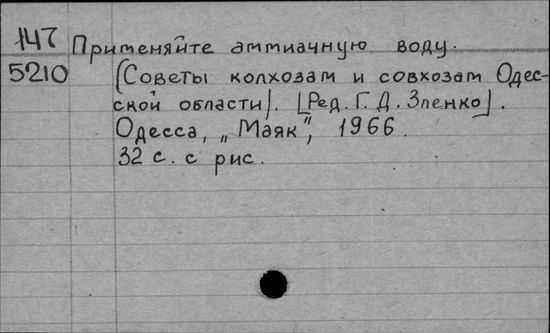 147 Применяйте аммиачную воду.
5210 (Советы колхозам и совхозам Одес-
ской области). [Ред. Г. Д. Зленко].
Одесса, „Маяк", 1966.
32 с. с рис.